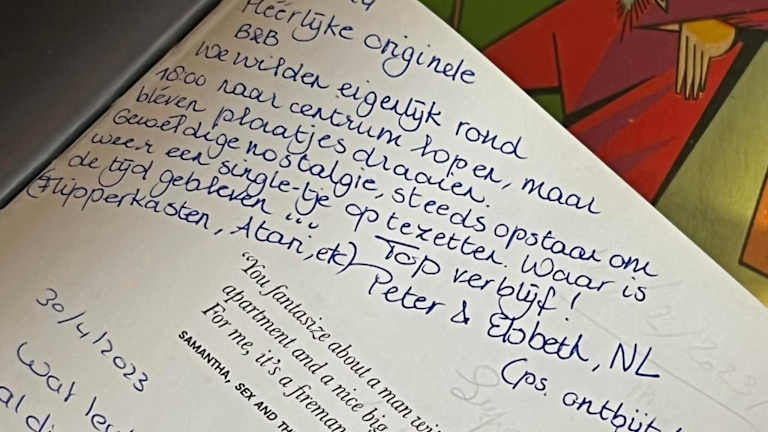 Heerlijke originele
B&B
We wilden eigenlijk rond
18:00 naar centrum lopen, maar
bleven plaatjes draaien.
Geweldige nostalgie, steeds opstaan om
weer een single-tje op te zetten. Waar is
de tijd gebleven ... Top verblijf!
(Flipperkasten, Atari, etc) Peter & Elsbeth, NL
(ps. ontbijt
"You fantasize about a man wi
apartment and a nice big
For me, it's a fireman
SAMANTHA, SEX AND TH
30/4/2023
Wat